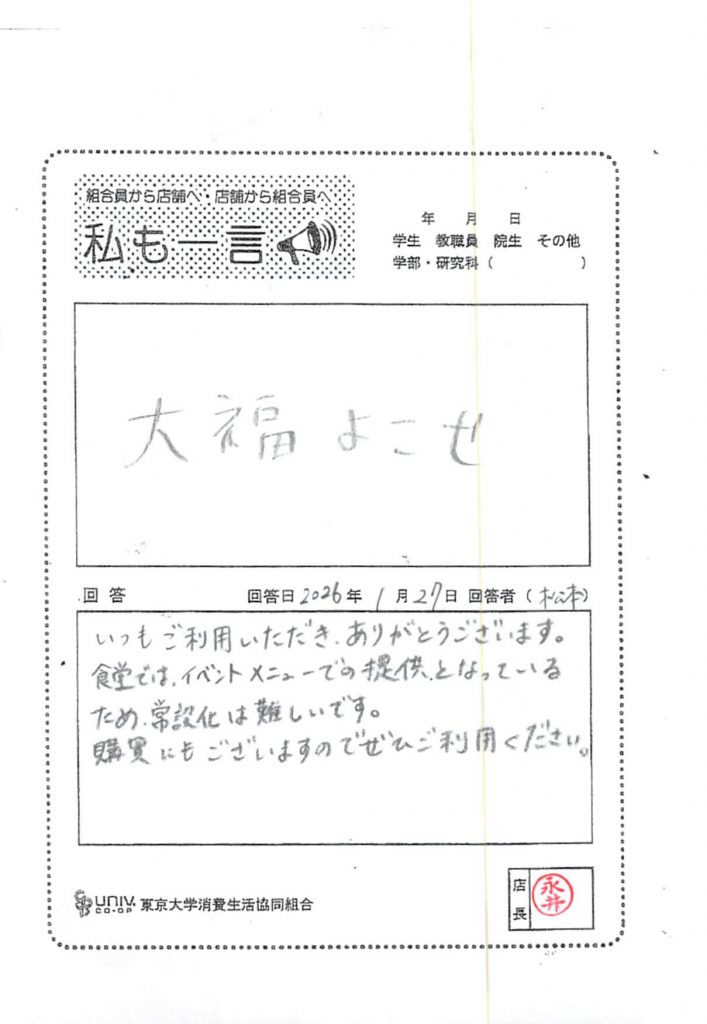 組合員から店舗へ・店舗から組合員へ
私も一言
年 月 日
学生 教職員 院生 その他
学部・研究科( )
大福よこせ
回答 回答日2026年1月27日 回答者(松本)
いつもご利用いただき、ありがとうございます。
食堂では、イベントメニューでの提供となっている
ため、常設化は難しいです。
購買にもございますのでぜひご利用ください。
UNIV. CO-OP 東京大学消費生活協同組合
店長 永井